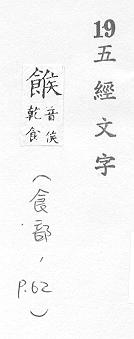 19
五經文字
餱
音侯
乾食
（食部，
p.62）